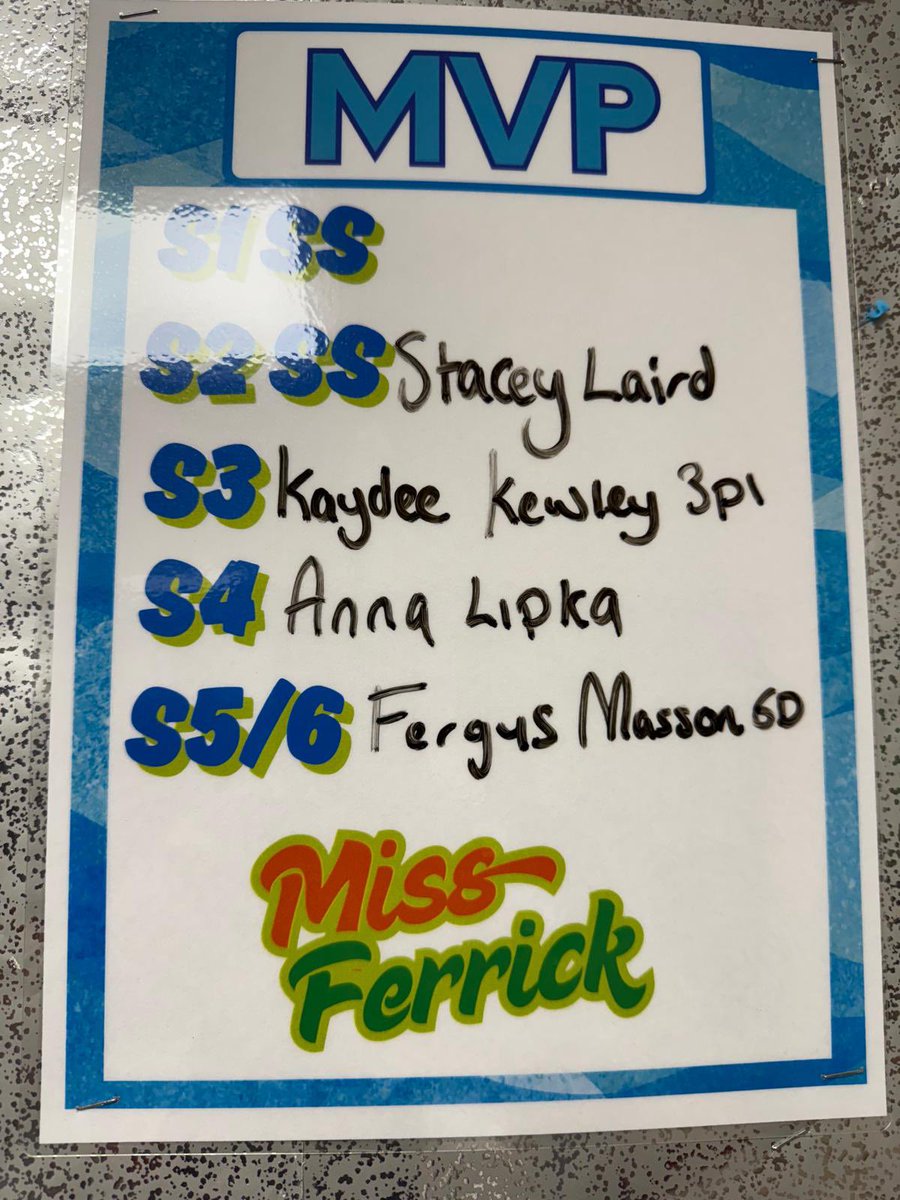 MVP
S1 SS
S2 SS Stacey Laird
S3 Kaydee Kewley 3p1
S4 Anna Lipka
S5/6 Fergus Masson 6D
Miss
Ferrick